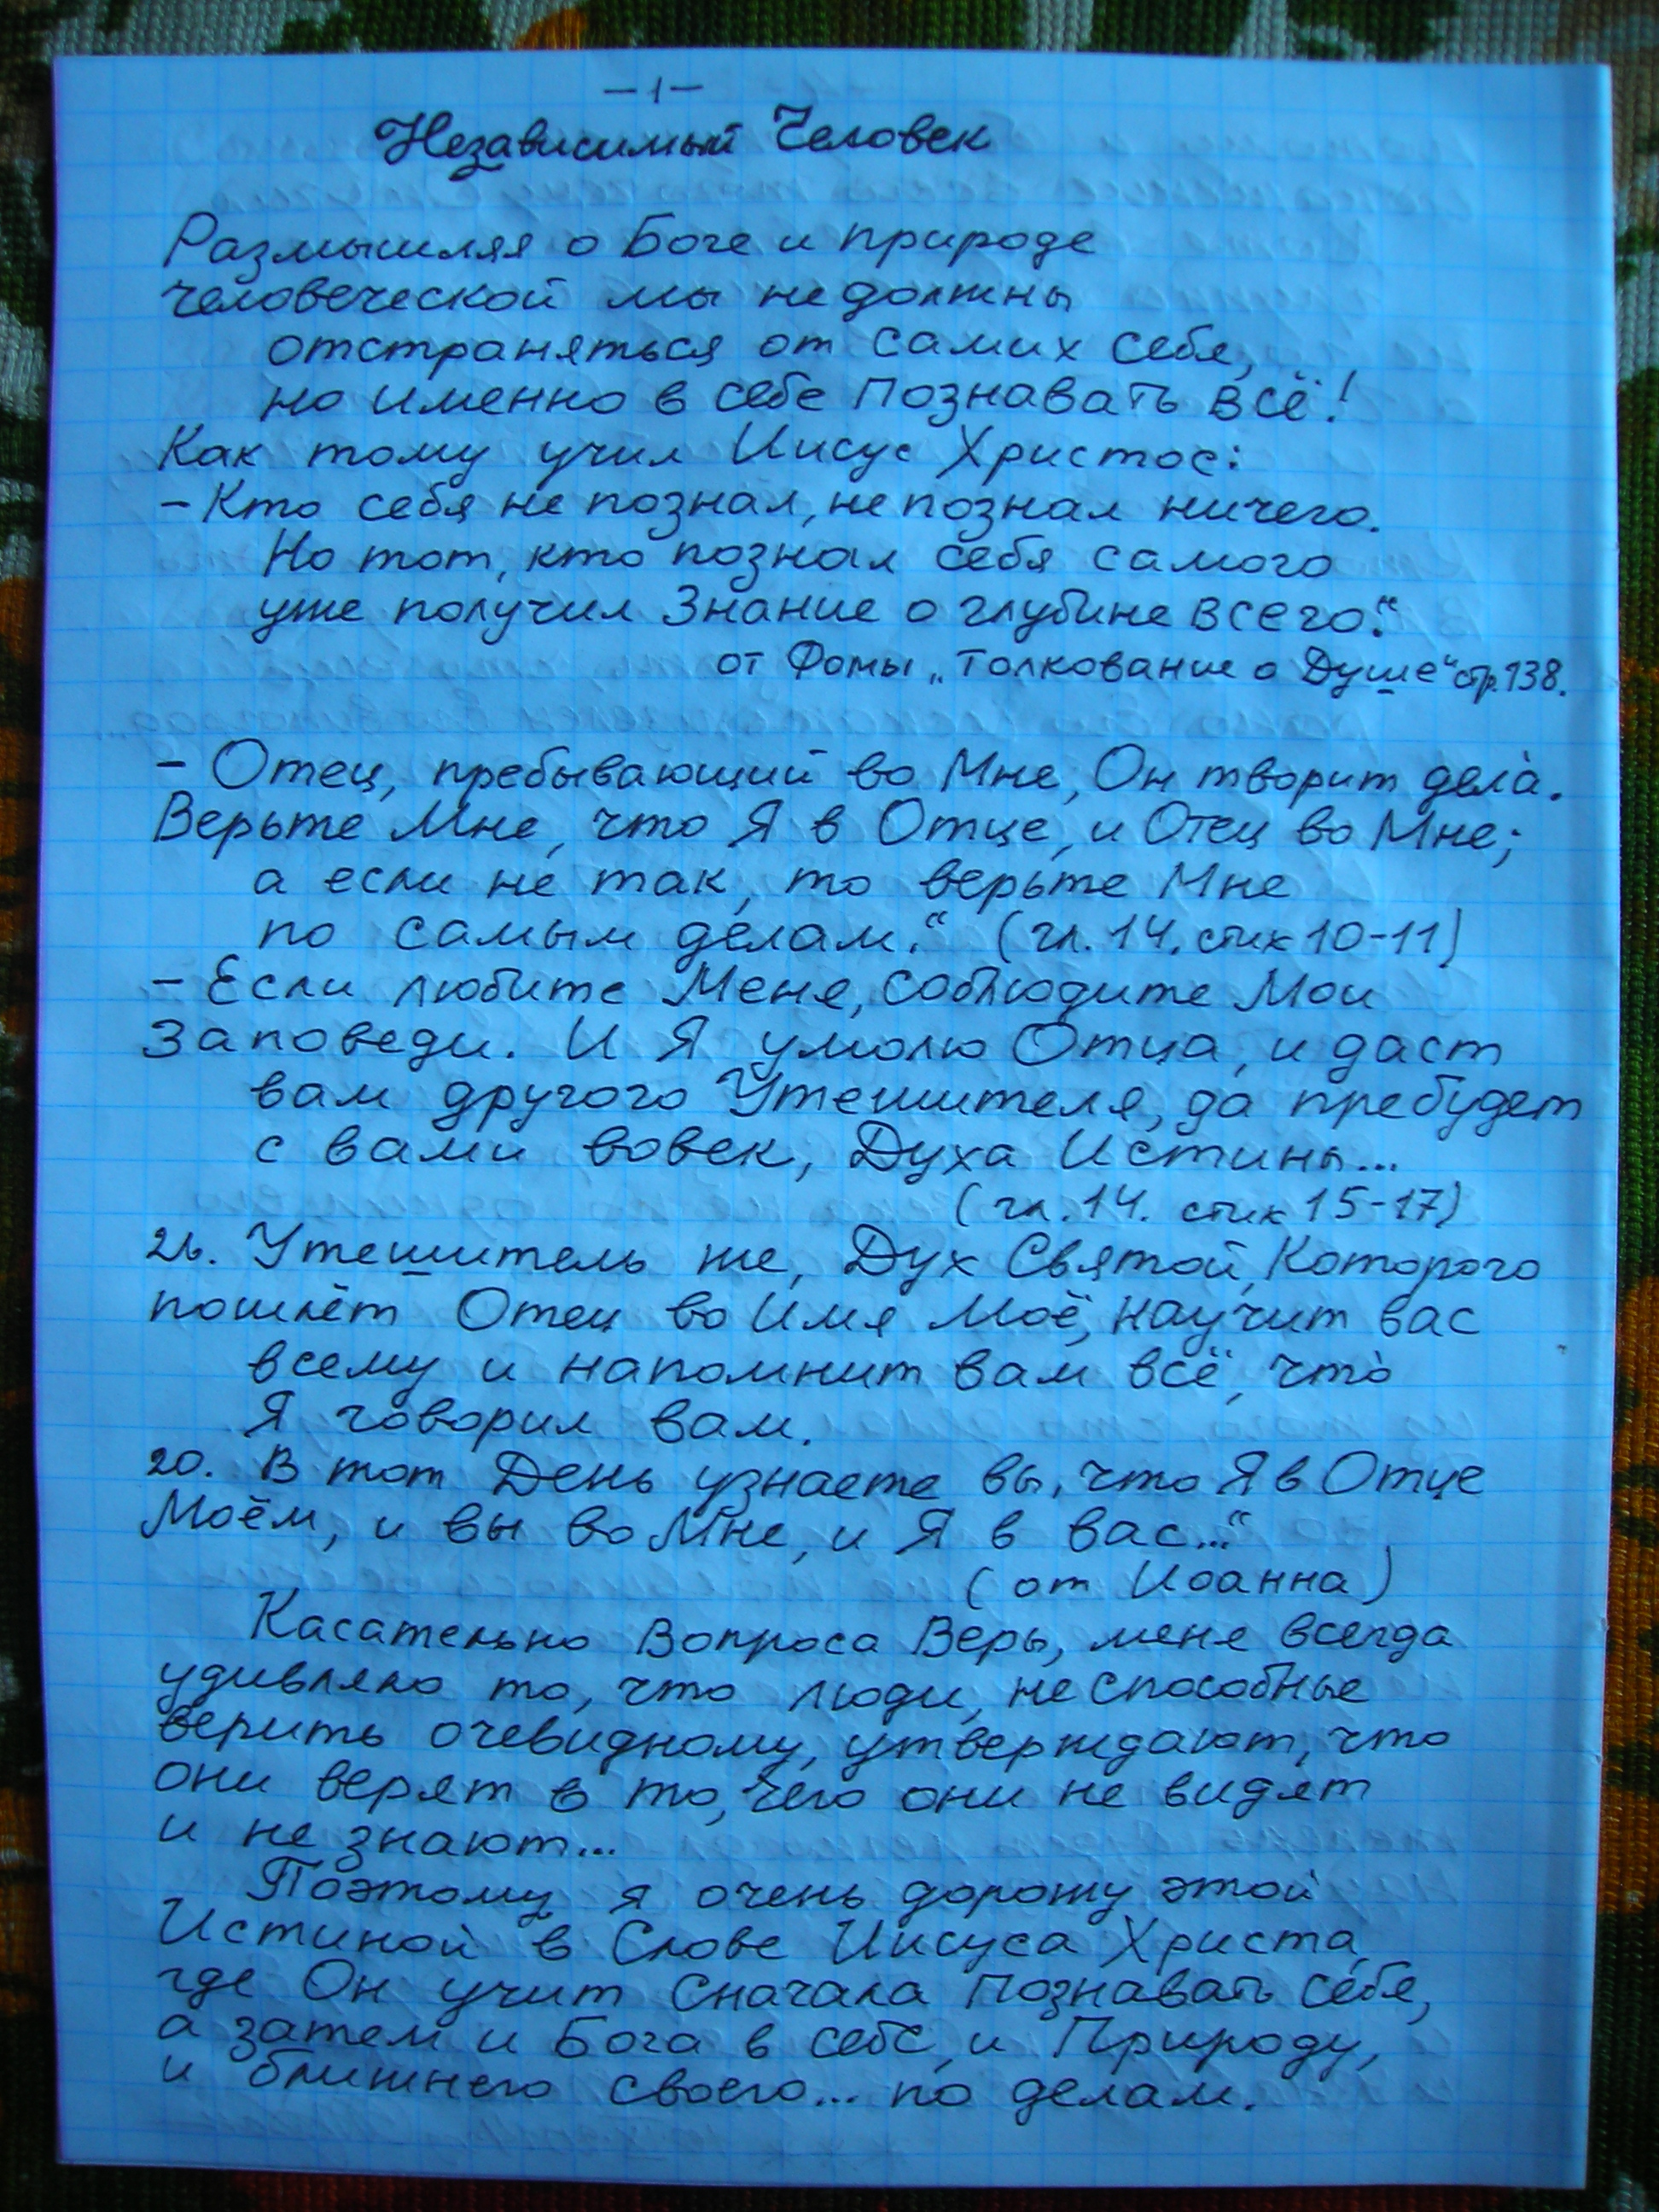 – 1 –
Независимый Человек
Размышляя о Боге и природе
человеческой мы не должны
отстраняться от самих себя,
но именно в себе познавать всё!
Как тому учил Иисус Христос:
– Кто себя не познал, не познал ничего.
Но тот, кто познал себя самого
уже получил Знание о глубине всего."
от Фомы „Толкование о Душе" стр. 138.
– Отец, пребывающий во Мне, Он творит дела.
Верьте Мне, что Я в Отце, и Отец во Мне;
а если не так, то верьте Мне
по самым делам." (гл. 14, стих 10-11)
– Если любите Меня, соблюдите Мои
Заповеди. И Я умолю Отца, и даст
вам другого Утешителя, да пребудет
с вами вовек, Духа Истины...
(гл. 14. стих 15-17)
26. Утешитель же, Дух Святой, Которого
пошлёт Отец во Имя Моё, научит вас
всему и напомнит вам всё, что
Я говорил вам.
20. В тот День узнаете вы, что Я в Отце
Моём, и вы во Мне, и Я в вас..."
(от Иоанна)
Касательно Вопроса Веры, меня всегда
удивляло то, что люди, не способные
верить очевидному, утверждают, что
они верят в то, чего они не видят
и не знают...
Поэтому я очень дорожу этой
Истиной в Слове Иисуса Христа,
где Он учит Сначала Познавать себя,
а затем и Бога в себе, и Природу,
и ближнего своего... по делам.